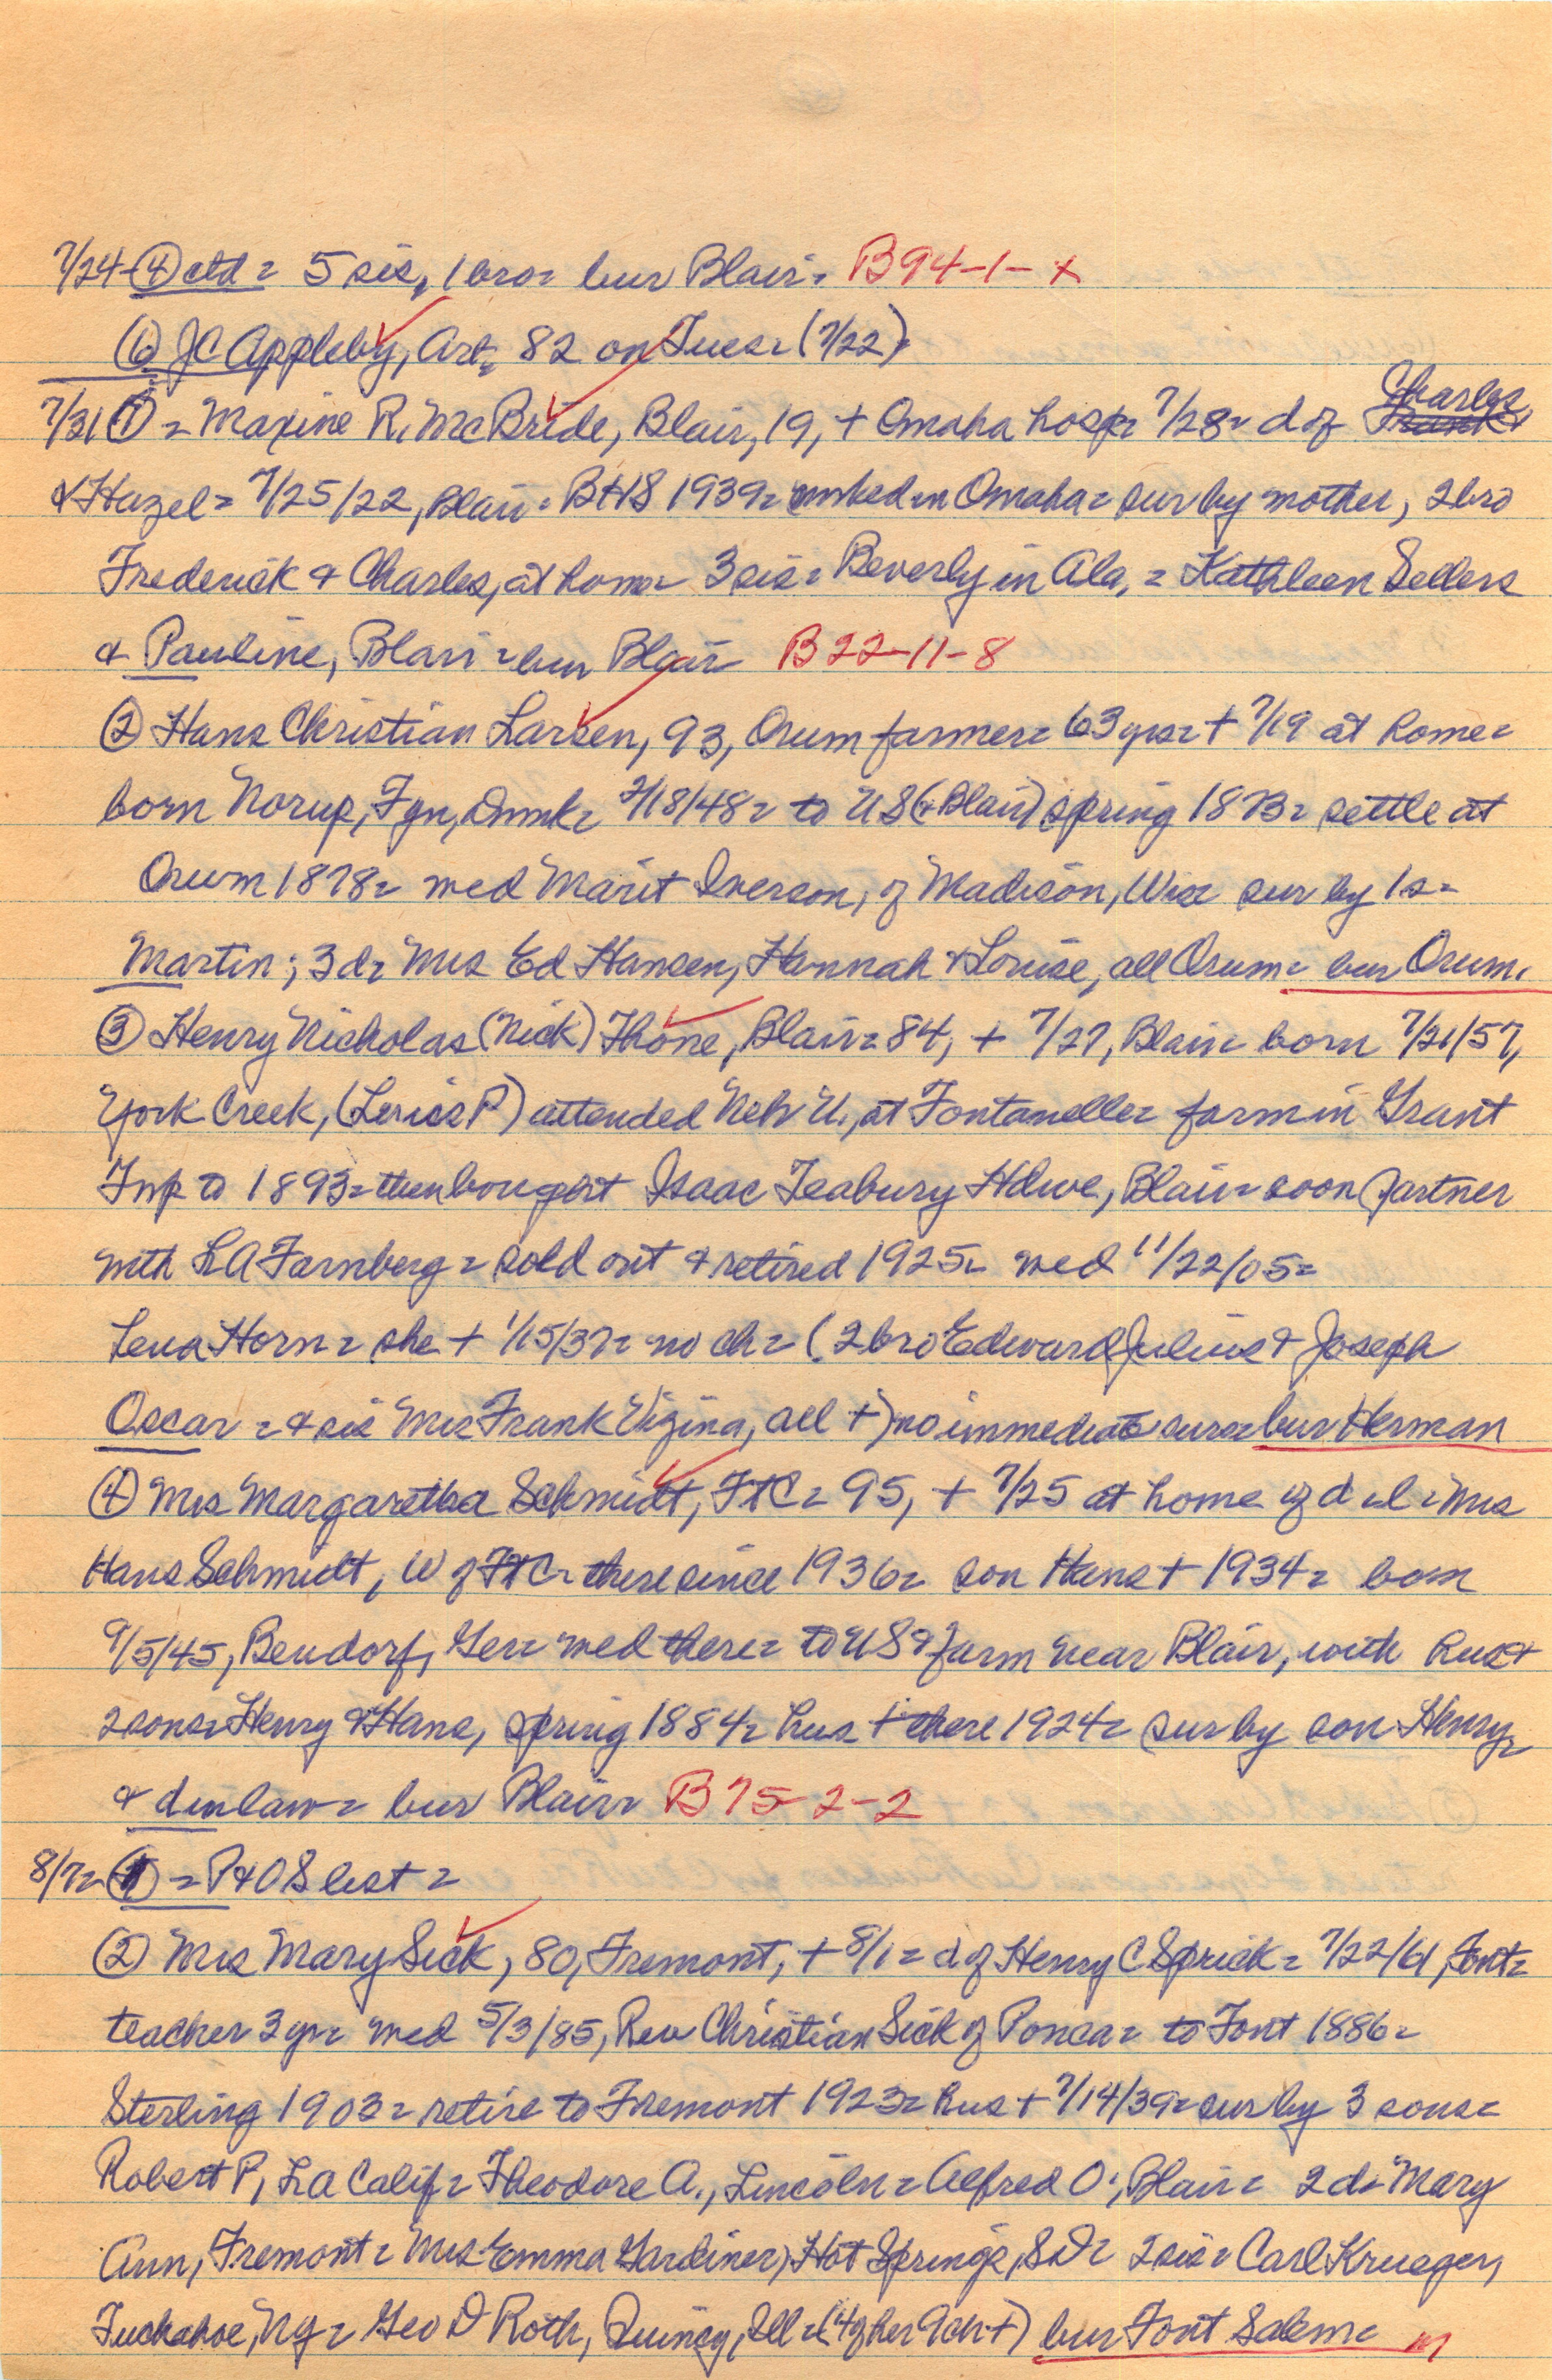 7/24-④ctd = 5 sis, 1 bro= bur Blair= B94-1-x
⑥ JC Appleby, Art, 82 on Tues= (7/22)
7/31 ① = Maxine R. McBride, Blair, 19, + Omaha hosp= 7/28= d of Charles
& Hazel= 7/25/22, Blair= BHS 1939= worked in Omaha= sur by mother, 2 bro
Frederick & Charles, at home= 3 sis= Beverly in Ala, = Kathleen Sellers
& Pauline, Blair = bur Blair B22-11-8
② Hans Christian Larsen, 93, Orum farmer= 63 yrs= + 7/19 at home=
born Norup, Fyn, Dnmk= 2/18/48= to US (& Blair) spring 1873= settle at
Orum 1878= wed Marit Iverson, of Madison, Wis= sur by 1 s=
Martin; 3 d= Mrs Ed Hansen, Hannah & Louise, all Orum= bur Orum.
③ Henry Nicholas (Nick) Thone, Blair= 84, + 7/27, Blair= born 7/21/57,
York Creek, ( P) attended Neb U., at Fontanelle= farm in Grant
Tnp to 1893= then bought Isaac Teabury Hdwe, Blair= soon partner
with LA Farnberg= sold out & retired 1925= wed 11/22/05=
Lena Horn= she + 1/15/37= no ch= (2 bro Edward Julius & Joseph
Oscar = & sis Mrs Frank Vizina, all +) no immediate surs= bur Herman
④ Mrs Margaretha Schmidt, FtC= 95, + 7/25 at home of d-i-l= Mrs
Hans Schmidt, W of FtC= there since 1936= son Hans + 1934= born
9/5/45, Bendorf, Ger= wed there= to US & farm near Blair, with hus &
2 sons= Henry & Hans, spring 1884= hus + there 1924= sur by son Henry=
& d in law= bur Blair= B75-2-2
8/7= ① = P&OS list =
② Mrs Mary Sick, 80, Fremont, + 8/1= d of Henry C Sprick= 7/22/61, Font=
teacher 3 yr= wed 5/3/85, Rev Christian Sick of Ponca= to Font 1886=
Sterling 1903= retire to Fremont 1923= hus + 7/14/39= sur by 3 sons=
Robert P, LA Calif= Theodore A., Lincoln= Alfred O., Blair= 2 d= Mary
Ann, Fremont= Mrs Emma Gardiner, Hot Springs, SD= 2 sis= Carl Krueger,
Tuckahoe, NY= Geo D Roth, Quincy, Ill= (4 of her 9 ch +) bur Font Salem=